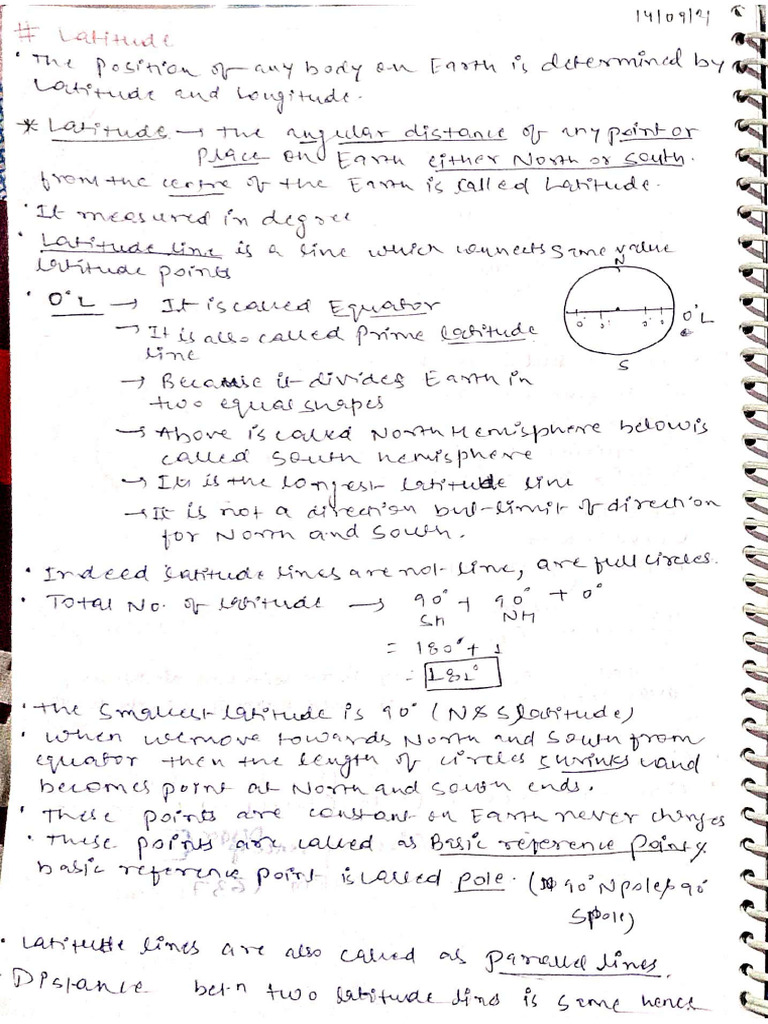 14/09/21
# Latitude
• The position of any body on Earth is determined by
Latitude and Longitude.
* Latitude → The angular distance of any point or
place on Earth either North or South.
from the centre of the Earth is called Latitude.
• It measured in degree
• Latitude line is a line which connects same value
latitude points
N
• 0°L → It is called Equator
0°L
→ It is also called Prime latitude
line
S
→ Because it divides Earth in
two equal shapes
→ Above is called North Hemisphere below is
called South hemisphere
→ It is the longest latitude line
→ It is not a direction but limit of direction
for North and South.
• Indeed latitude lines are not line, are full circles.
• Total No. of latitude → 90° + 90° + 0°
SH NH
= 180° + 1
= 181°
• The smallest latitude is 90° (N & S latitude)
• When we move towards North and South from
equator then the length of circles surinks and
becomes point at North and South ends.
• These points are constant on Earth never changes
• These points are called as Basic reference point
basic reference point is called pole. (90° N pole & 90°
S pole)
• Latitude lines are also called as parallel lines.
- Distance bet-n two latitude line is same hence